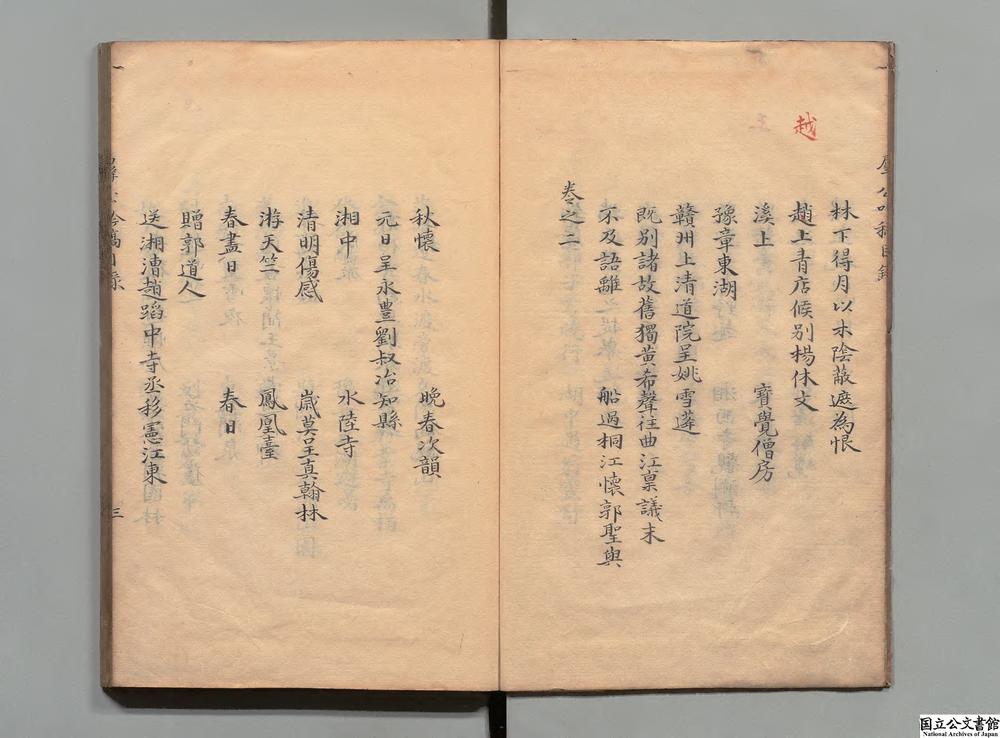 越
林下得月以木陰蔽遮為恨
趙上青店候別楊休文
溪上 寳覺僧房
豫章東湖
贛州上清道院呈姚雪蓬
既別諸故舊獨黃希聲往曲江稟議未
不及語離 船過桐江懷郭聖與
卷之二
秋懷 晚春次韻
元日呈永豐劉叔冶知縣
湘中 水陸寺
清明傷感 歲莫呈真翰林
游天竺 鳳凰臺
春盡日 春日
贈郭道人
送湘漕趙蹈中寺丞移憲江東
三
国立公文書館
National Archives of Japan